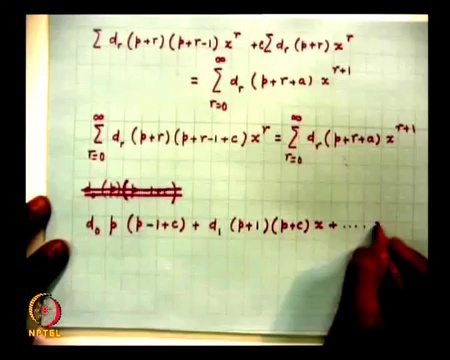 ∑ d_r (p+r) (p+r-1) x^r + c ∑ d_r (p+r) x^r
= ∑_{r=0}^{∞} d_r (p+r+a) x^{r+1}
∑_{r=0}^{∞} d_r (p+r) (p+r-1+c) x^r = ∑_{r=0}^{∞} d_r (p+r+a) x^{r+1}
d_0 p (p-1+c) + d_1 (p+1) (p+c) x + .....
NPTEL